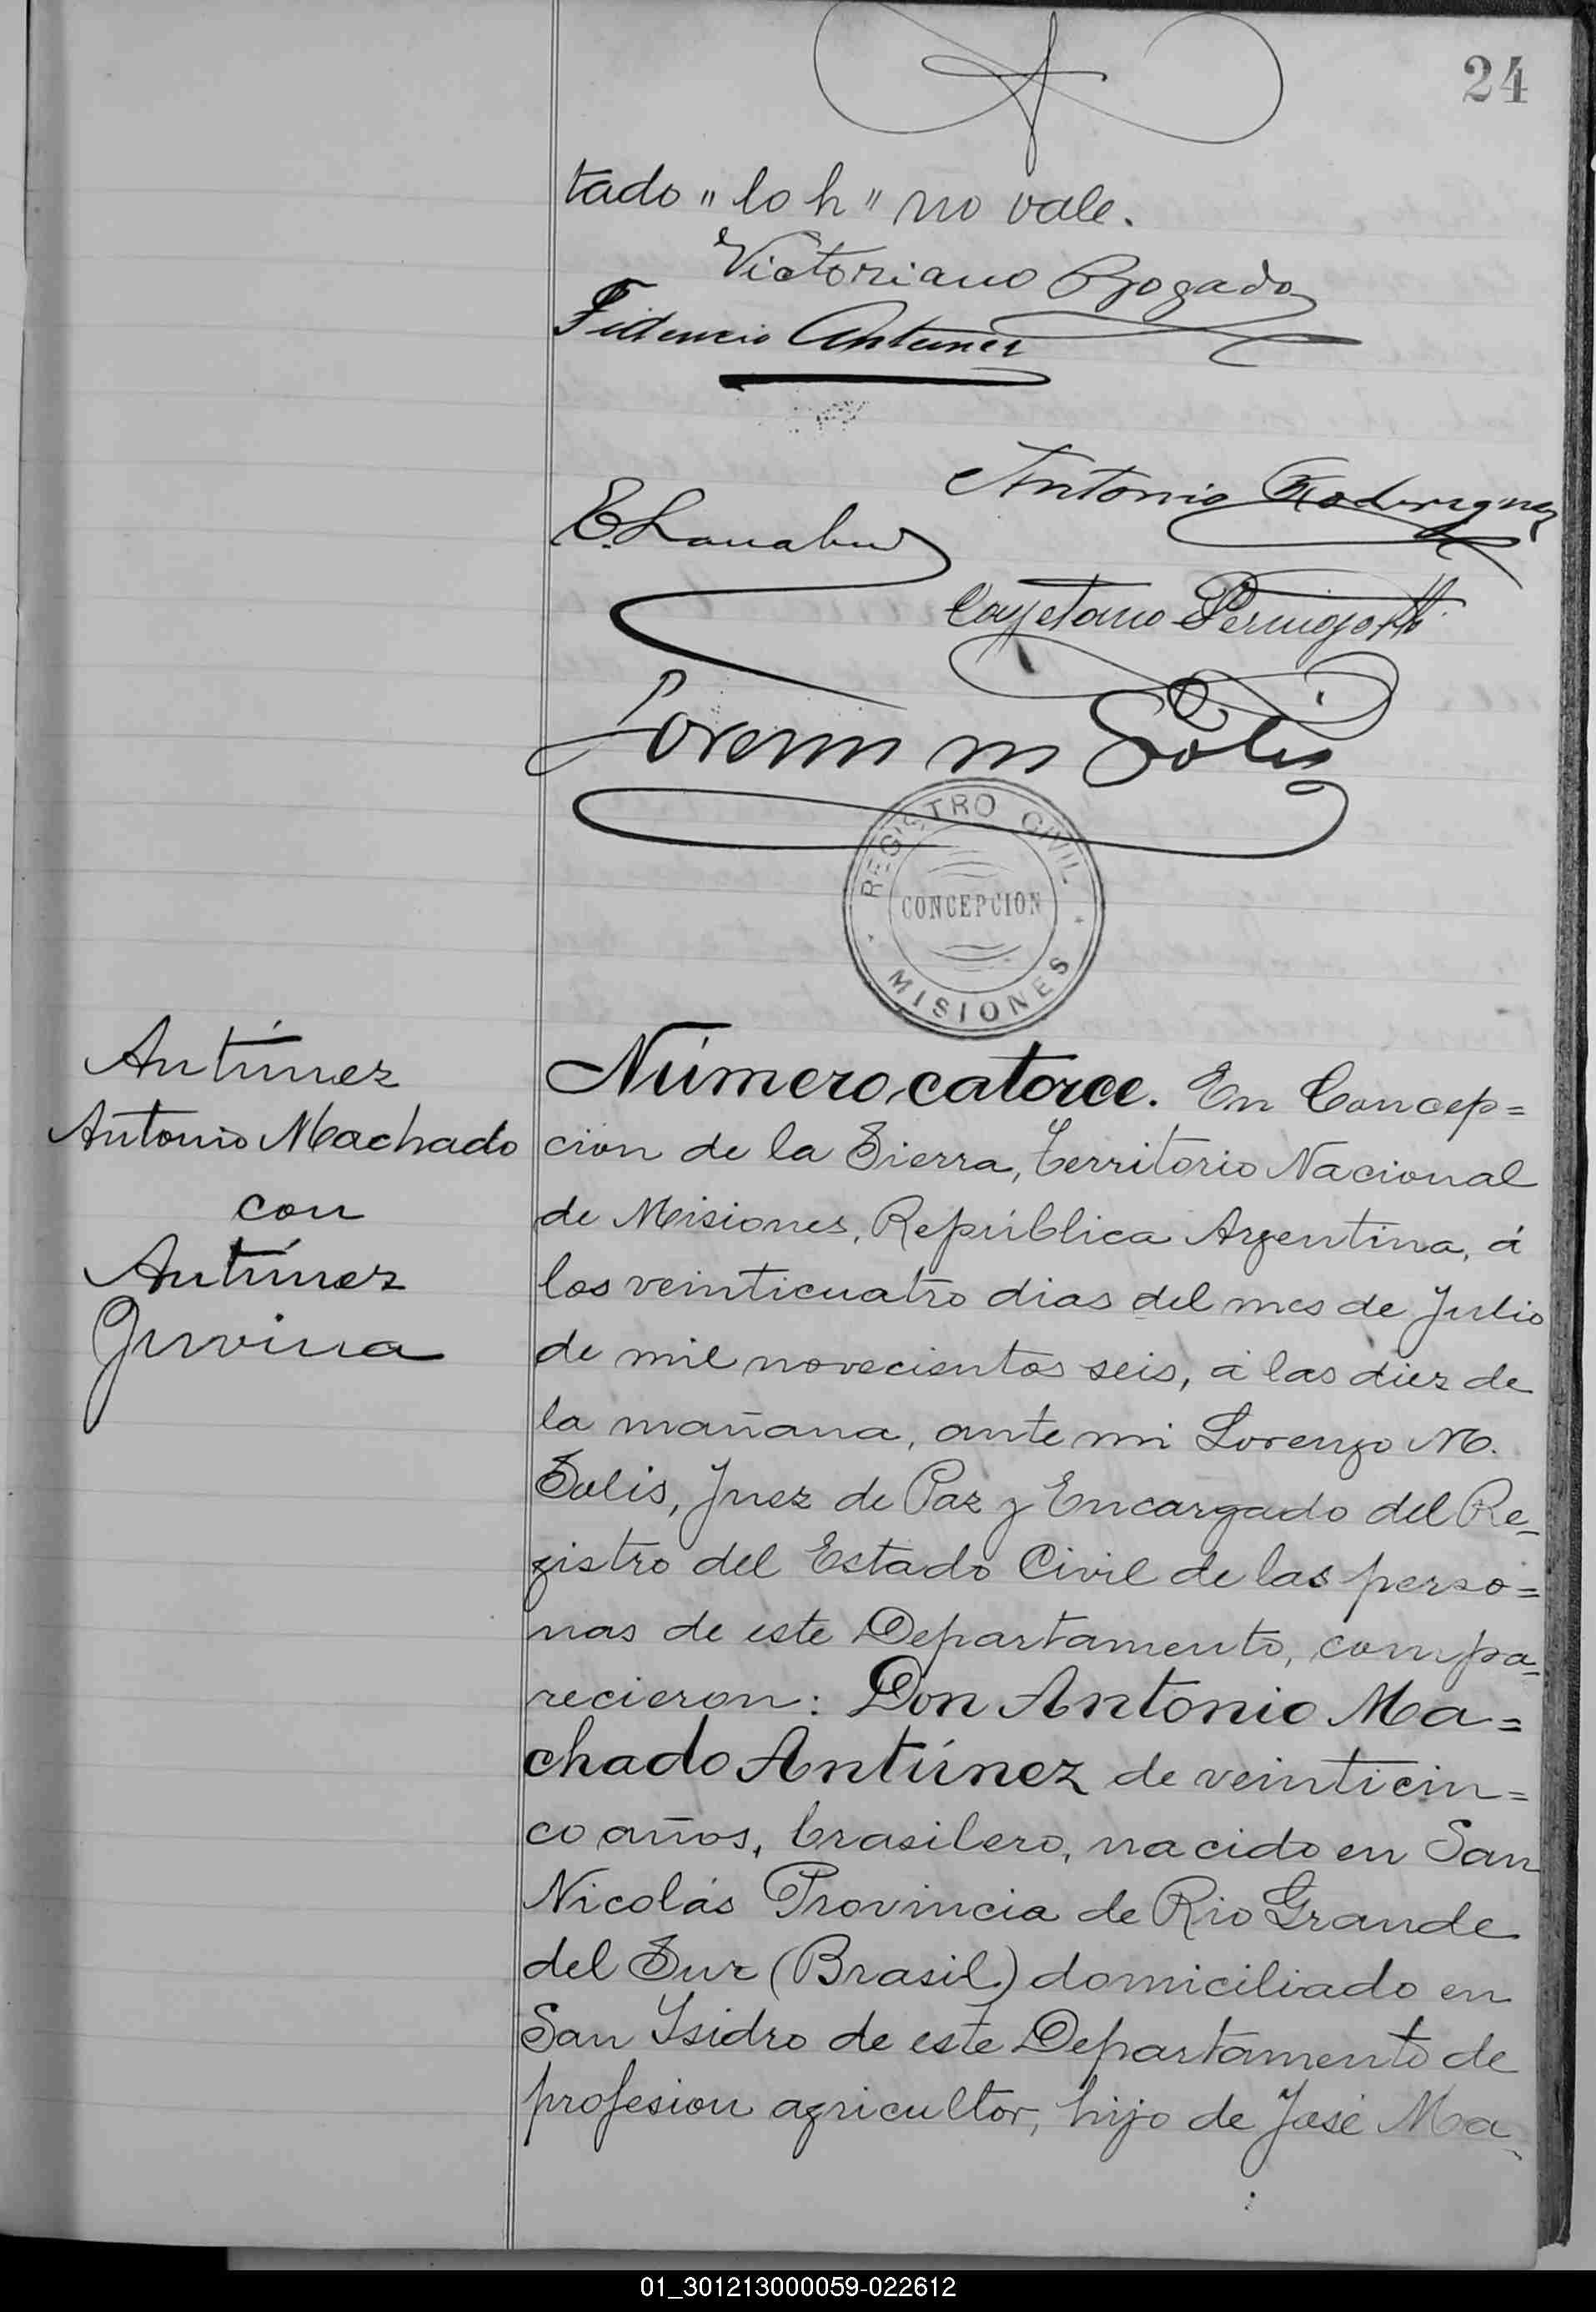 24
tado " lo h " no vale.
Victoriano Bogado
Fidencio Antunez
Antonio Rodriguez
E.
Cayetano Pernigotti
Lorenzo M Solis
REGISTRO CIVIL
CONCEPCION
MISIONES
Antúnez
Antonio Machado
con
Antúnez
Jurvina
Número catorce. En Concep=
cion de la Sierra, Territorio Nacional
de Misiones, República Argentina, á
los veinticuatro dias del mes de Julio
de mil novecientos seis, á las diez de
la mañana, ante mi Lorenzo M.
Solis, Juez de Paz y Encargado del Re=
gistro del Estado Civil de las perso=
nas de este Departamento, compa=
recieron: Don Antonio Ma=
chado Antúnez de veinticin=
co años, brasilero, nacido en San
Nicolás Provincia de Rio Grande
del Sur (Brasil) domiciliado en
San Ysidro de este Departamento de
profesion agricultor, hijo de José Ma
01_301213000059-022612